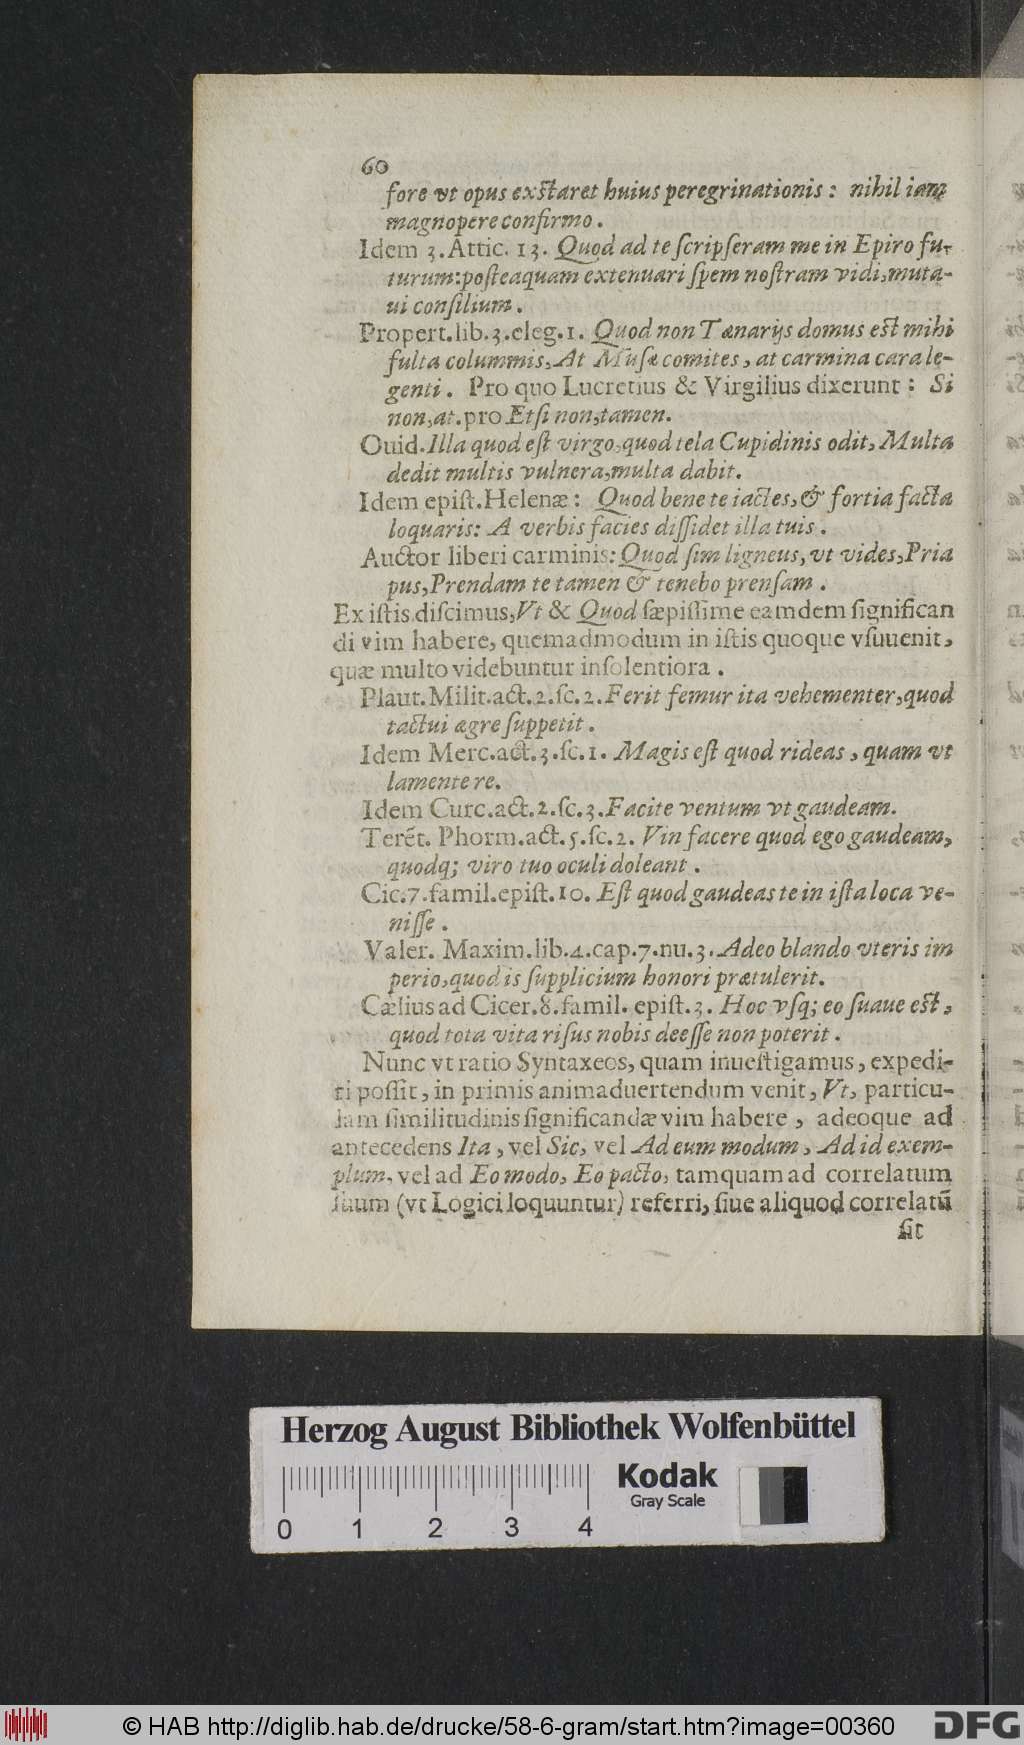 60
fore vt opus exſtaret huius peregrinationis : nihil iam
magnopere confirmo .
Idem 3. Attic. 13. Quod ad te ſcripſeram me in Epiro fu-
turum: poſteaquam extenuari ſpem noſtram vidi, muta-
ui conſilium .
Propert. lib. 3. eleg. 1. Quod non Tænarijs domus eſt mihi
fulta columnis, At Muſæ comites, at carmina cara le-
genti . Pro quo Lucretius & Virgilius dixerunt : Si
non, at. pro Etſi non, tamen.
Ouid. Illa quod eſt virgo, quod tela Cupidinis odit, Multa
dedit multis vulnera, multa dabit.
Idem epiſt. Helenæ : Quod bene te iactes, & fortia facta
loquaris: A verbis facies diſſidet illa tuis .
Auctor liberi carminis: Quod ſim ligneus, vt vides, Pria
pus, Prendam te tamen & tenebo prenſam .
Ex iſtis diſcimus, Vt & Quod ſæpiſſime eamdem ſignifican
di vim habere, quemadmodum in iſtis quoque vſuuenit,
quæ multo videbuntur inſolentiora .
Plaut. Milit. act. 2. ſc. 2. Ferit femur ita vehementer, quod
tactui ægre ſuppetit .
Idem Merc. act. 3. ſc. 1. Magis eſt quod rideas , quam vt
lamentere.
Idem Curc. act. 2. ſc. 3. Facite ventum vt gaudeam.
Terēt. Phorm. act. 5. ſc. 2. Vin facere quod ego gaudeam,
quodq; viro tuo oculi doleant .
Cic. 7. famil. epiſt. 10. Eſt quod gaudeas te in iſta loca ve-
niſſe .
Valer. Maxim. lib. 4. cap. 7. nu. 3. Adeo blando vteris im
perio, quod is ſupplicium honori prætulerit.
Cælius ad Cicer. 8. famil. epiſt. 3. Hoc vſq; eo ſuaue eſt,
quod tota vita riſus nobis deeſſe non poterit .
Nunc vt ratio Syntaxeos, quam inueſtigamus, expedi-
ri poſſit, in primis animaduertendum venit, Vt, particu-
lam ſimilitudinis ſignificandæ vim habere , adeoque ad
antecedens Ita , vel Sic, vel Ad eum modum , Ad id exem-
plum, vel ad Eo modo, Eo pacto, tamquam ad correlatum
ſuum (vt Logici loquuntur) referri, ſiue aliquod correlatū
ſit
Herzog August Bibliothek Wolfenbüttel
Kodak
Gray Scale
0 1 2 3 4
© HAB http://diglib.hab.de/drucke/58-6-gram/start.htm?image=00360
DFG